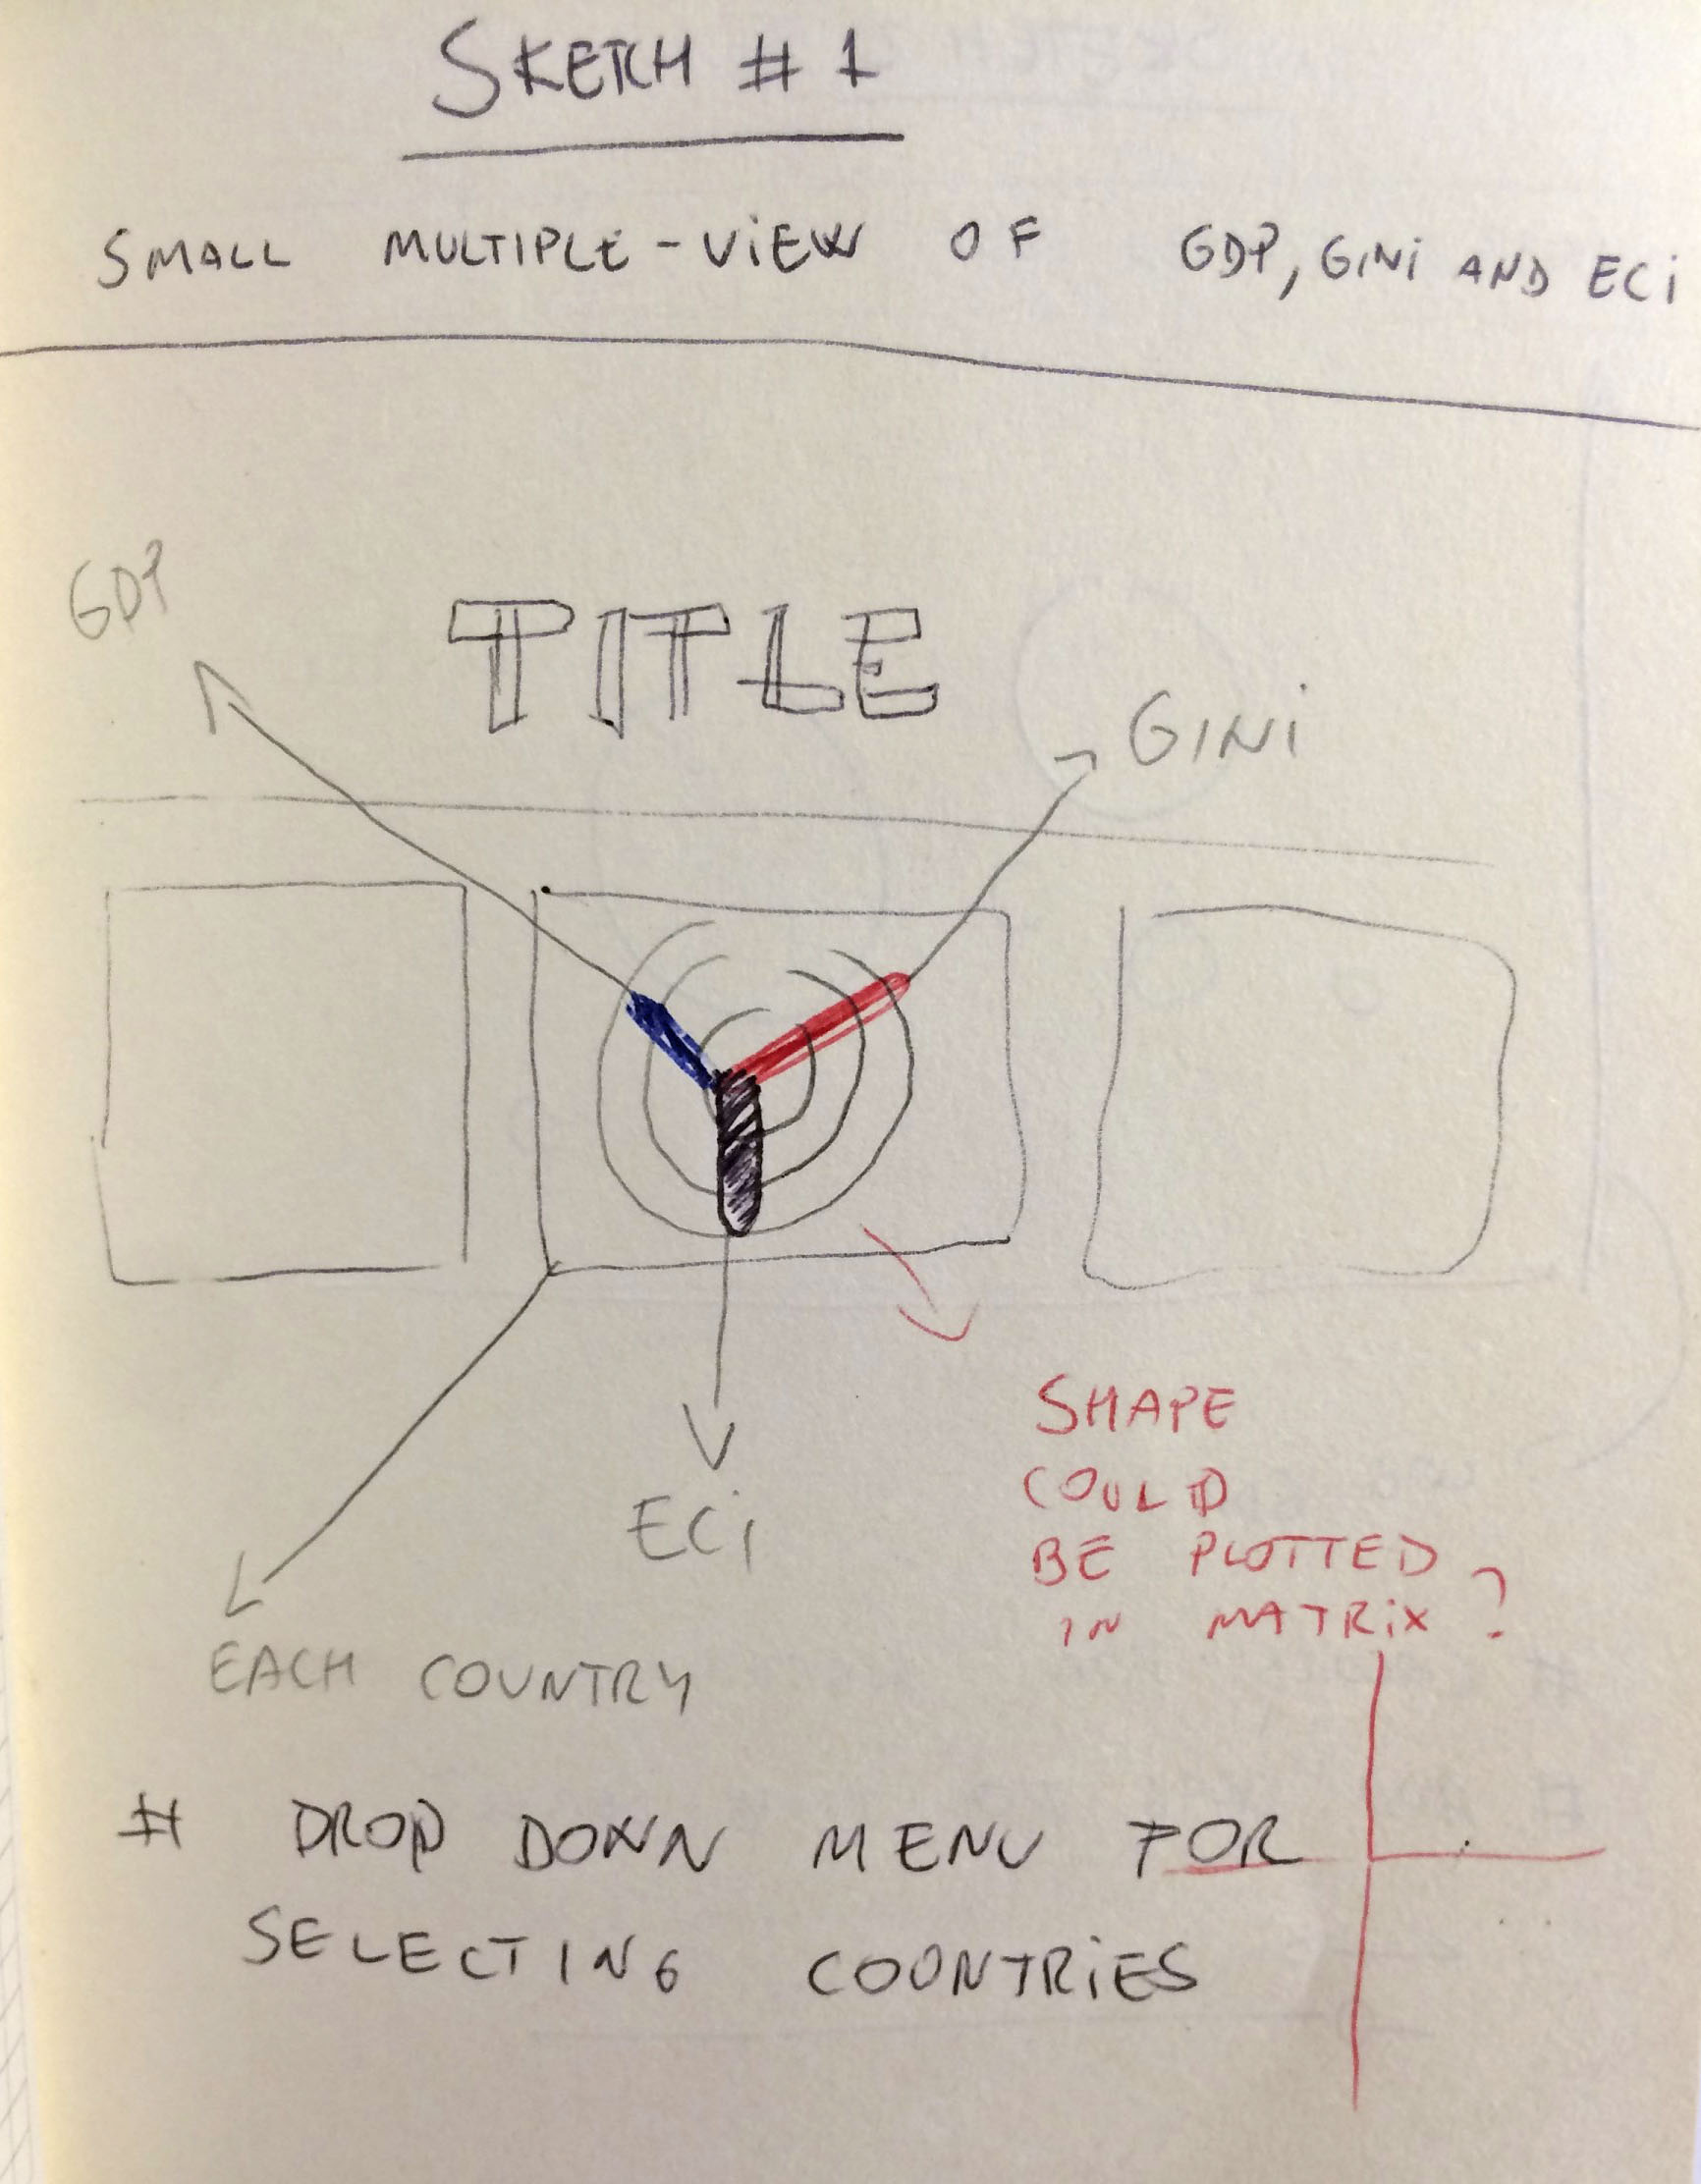 SKETCH # 1
SMALL MULTIPLE-VIEW OF GDP, GINI AND ECI
GDP
TITLE
GINI
ECI
SHAPE
COULD
BE PLOTTED
IN MATRIX ?
EACH COUNTRY
# DROP DOWN MENU FOR
SELECTING COUNTRIES